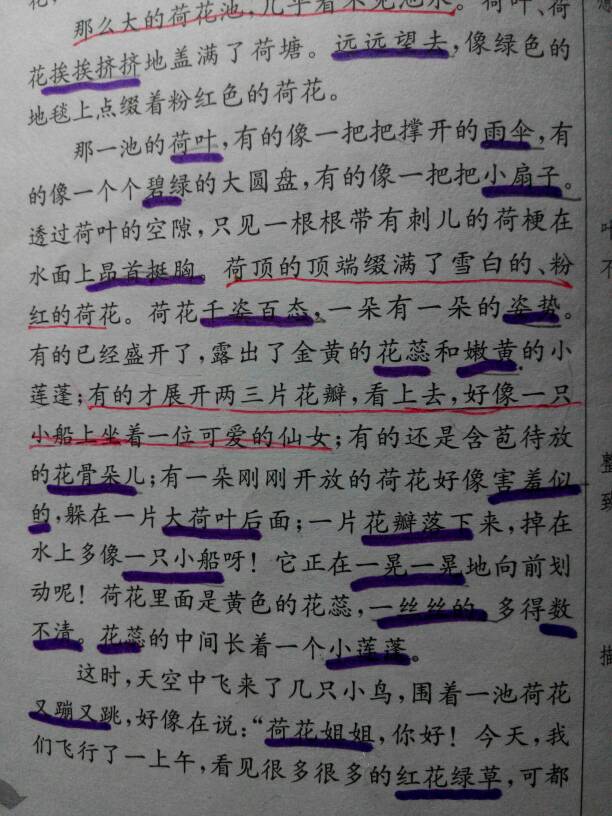 那么大的荷花池，几乎看不见池水。荷叶、荷
花挨挨挤挤地盖满了荷塘。远远望去，像绿色的
地毯上点缀着粉红色的荷花。
那一池的荷叶，有的像一把把撑开的雨伞，有
的像一个个碧绿的大圆盘，有的像一把把小扇子。
透过荷叶的空隙，只见一根根带有刺儿的荷梗在
水面上昂首挺胸。荷顶的顶端缀满了雪白的、粉
红的荷花。荷花千姿百态，一朵有一朵的姿势。
有的已经盛开了，露出了金黄的花蕊和嫩黄的小
莲蓬；有的才展开两三片花瓣，看上去，好像一只
小船上坐着一位可爱的仙女；有的还是含苞待放
的花骨朵儿；有一朵刚刚开放的荷花好像害羞似
的，躲在一片大荷叶后面；一片花瓣落下来，掉在
水上多像一只小船呀！它正在一晃一晃地向前划
动呢！荷花里面是黄色的花蕊，一丝丝的，多得数
不清。花蕊的中间长着一个小莲蓬。
这时，天空中飞来了几只小鸟，围着一池荷花
又蹦又跳，好像在说：“荷花姐姐，你好！今天，我
们飞行了一上午，看见很多很多的红花绿草，可都